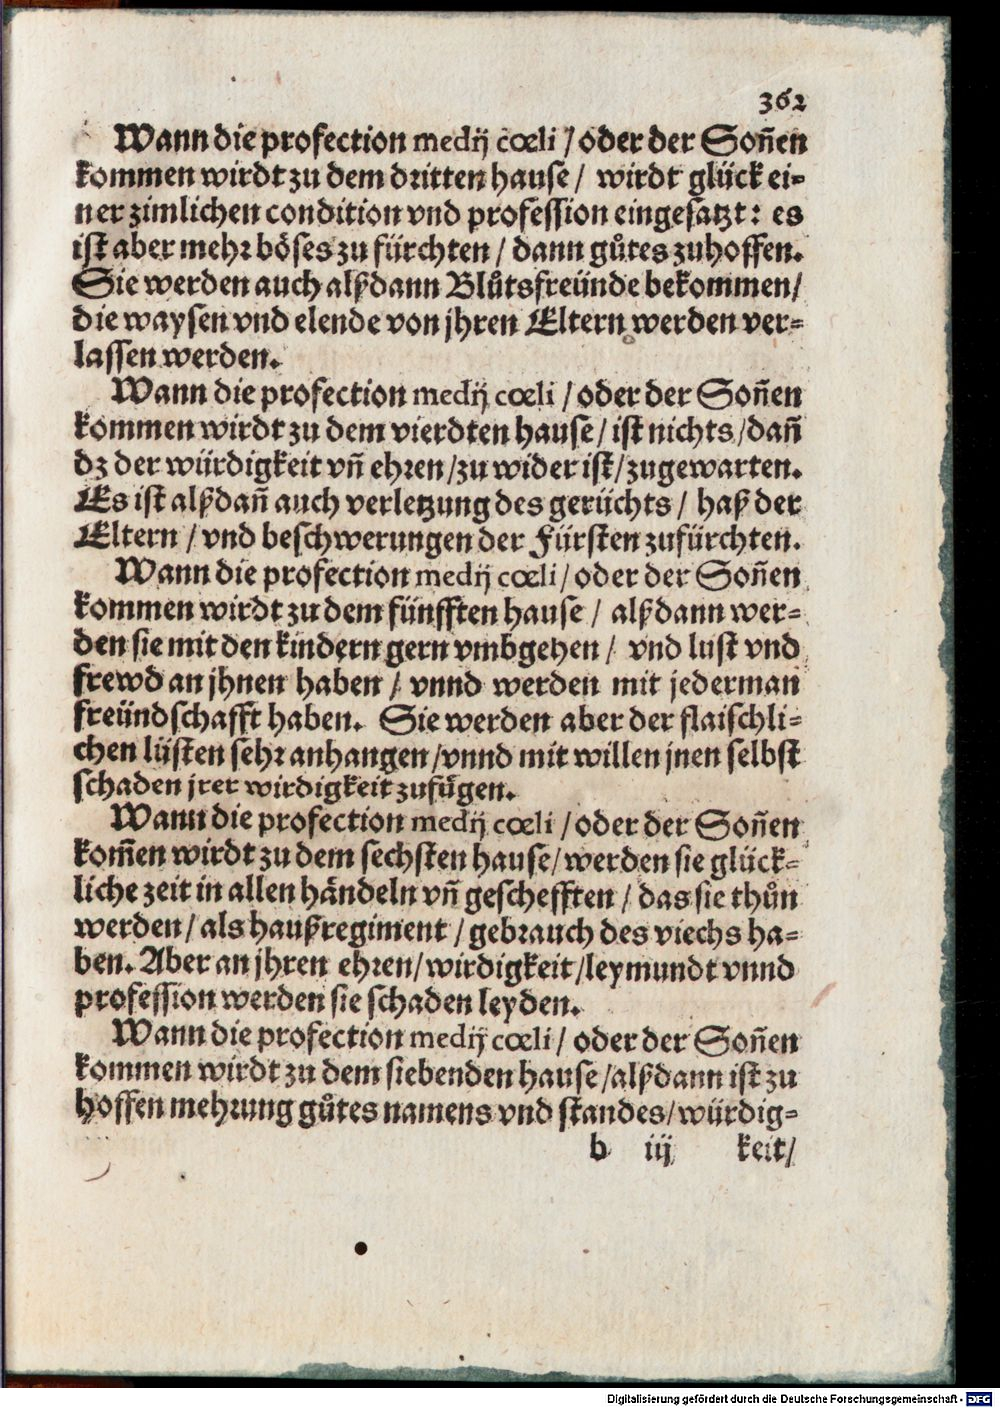 362
Wann die profection medij cœli / oder der Soñen
kommen wirdt zu dem dritten hause / wirdt glück ei-
ner zimlichen condition vnd profession eingesatzt: es
ist aber mehr böses zu fürchten / dann gůtes zuhoffen.
Sie werden auch alßdann Blůtsfreünde bekommen/
die waysen vnd elende von jhren Eltern werden ver-
lassen werden.
Wann die profection medij cœli / oder der Soñen
kommen wirdt zu dem vierdten hause / ist nichts / dañ
dz der würdigkeit vñ ehren / zu wider ist / zugewarten.
Es ist alßdañ auch verletzung des gerüchts / haß der
Eltern / vnd beschwerungen der Fürsten zufürchten.
Wann die profection medij cœli / oder der Soñen
kommen wirdt zu dem fünfften hause / alßdann wer-
den sie mit den kindern gern vmbgehen / vnd lust vnd
frewd an jhnen haben / vnnd werden mit jederman
freündschafft haben. Sie werden aber der flaischli-
chen lüsten sehr anhangen / vnnd mit willen jnen selbst
schaden jrer wirdigkeit zufůgen.
Wann die profection medij cœli / oder der Soñen
kom̃en wirdt zu dem sechsten hause / werden sie glück-
liche zeit in allen händeln vñ geschefften / das sie thůn
werden / als haußregiment / gebrauch des viechs ha-
ben. Aber an jhren ehren / wirdigkeit / leymundt vnnd
profession werden sie schaden leyden.
Wann die profection medij cœli / oder der Soñen
kommen wirdt zu dem siebenden hause / alßdann ist zu
hoffen mehrung gůtes namens vnd standes / würdig-
b iij keit /
Digitalisierung gefördert durch die Deutsche Forschungsgemeinschaft - DFG